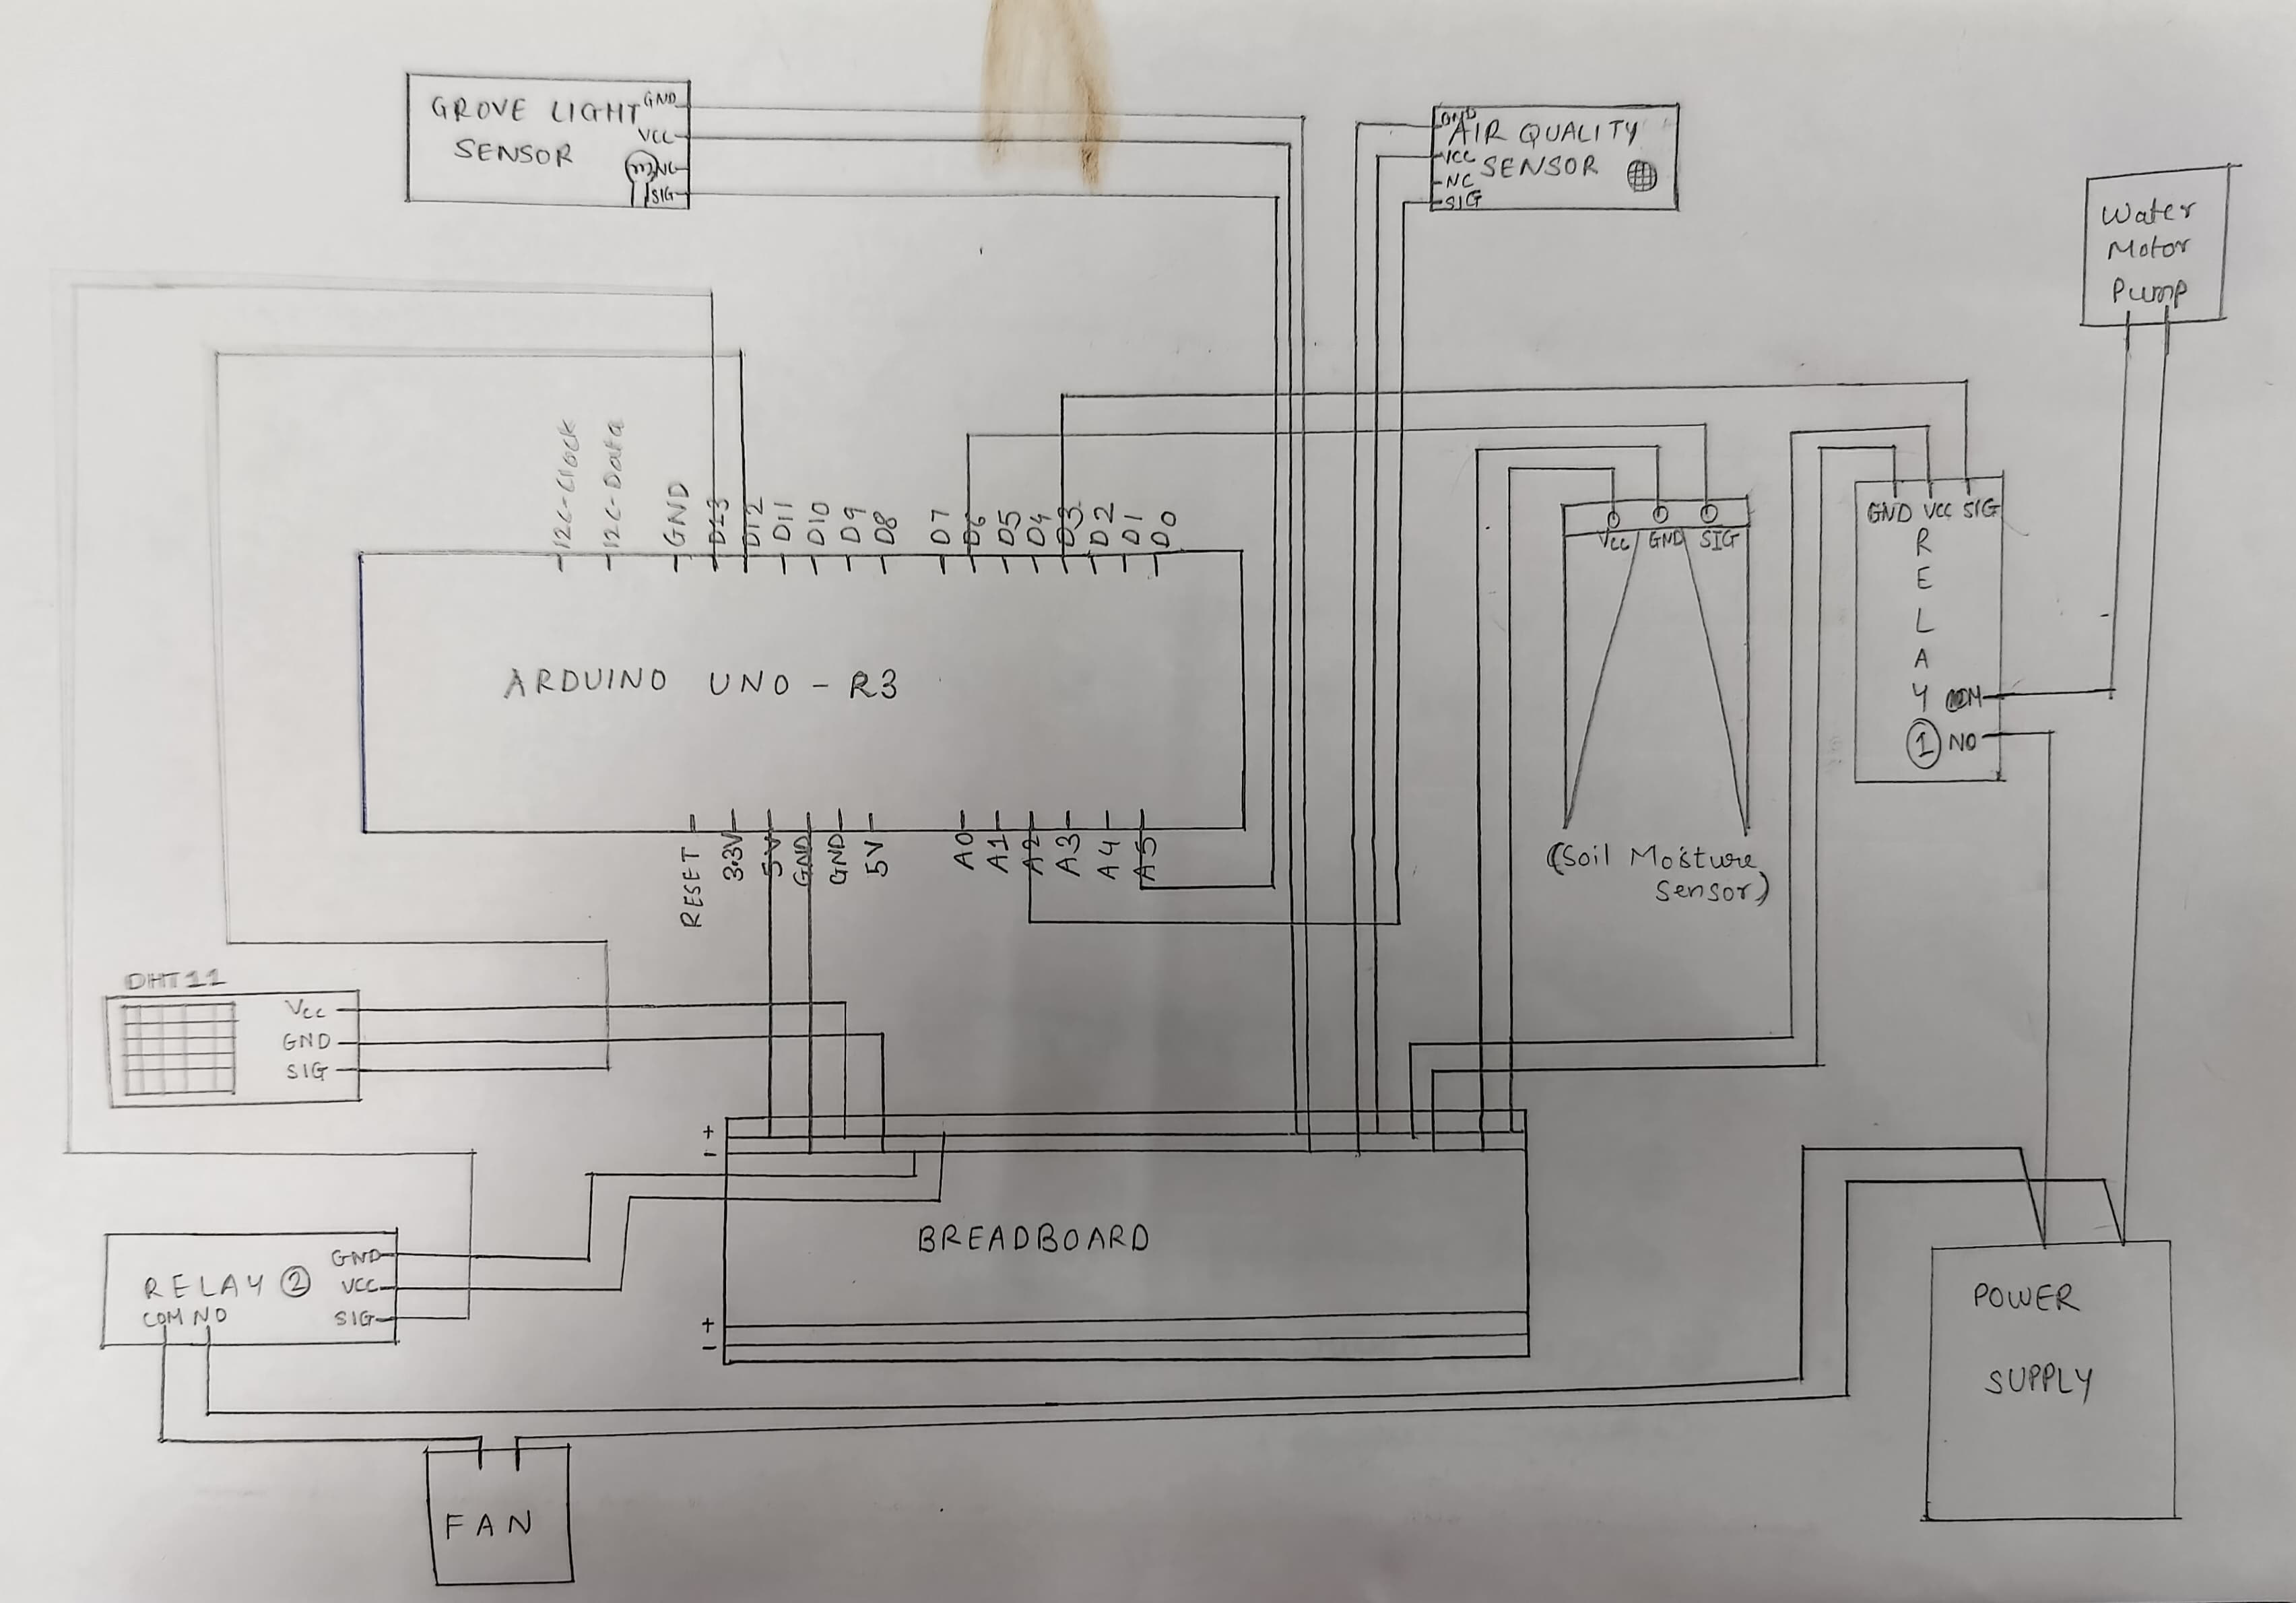 GROVE LIGHT
SENSOR
GND
VCC
NC
SIG
GND
VCC
NC
SIG
AIR QUALITY
SENSOR
Water
Motor
Pump
I2C-Clock
I2C-Data
GND
D13
D12
D11
D10
D9
D8
D7
D6
D5
D4
D3
D2
D1
D0
ARDUINO UNO - R3
RESET
3.3V
5V
GND
GND
5V
A0
A1
A2
A3
A4
A5
VCC GND SIG
(Soil Moisture
Sensor)
GND VCC SIG
R
E
L
A
Y
1
COM
NO
DHT11
VCC
GND
SIG
+
-
BREADBOARD
+
-
RELAY 2
GND
VCC
SIG
COM NO
FAN
POWER
SUPPLY